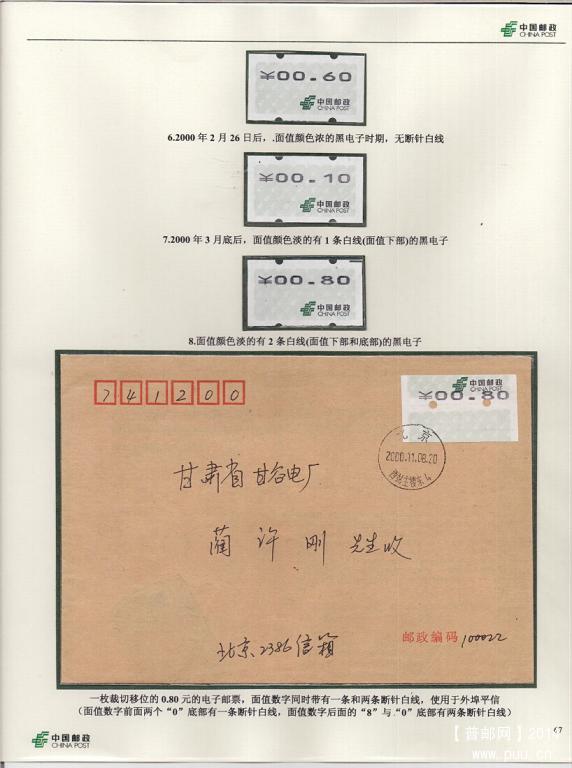 中国邮政
CHINA POST
¥00.60
中国邮政
CHINA POST
6.2000 年 2 月 26 日后，.面值颜色浓的黑电子时期，无断针白线
¥00.10
中国邮政
CHINA POST
7.2000 年 3 月底后，面值颜色淡的有 1 条白线(面值下部)的黑电子
¥00.80
中国邮政
CHINA POST
8.面值颜色淡的有 2 条白线(面值下部和底部)的黑电子
741200
中国邮政
¥00.80
北京
2000.11.08.20
甘肃省甘谷电厂
蔺许刚 先生收
邮政编码 100022
北京2386信箱
一枚裁切移位的 0.80 元的电子邮票，面值数字同时带有一条和两条断针白线，使用于外埠平信
（面值数字前面两个“0”底部有一条断针白线，面值数字后面的“8”与“0”底部有两条断针白线）
中国邮政
CHINA POST
67
【普邮网】
www.puu.cn